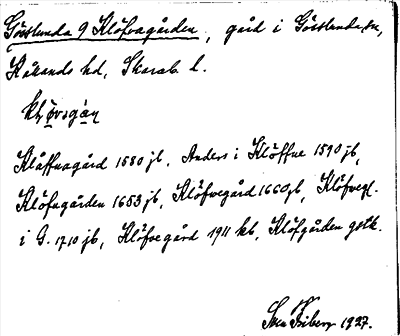 Göteslunda 9 Klöfvagården, gård i Göteslunda sn,
Kåkinds hd, Skarab. l.
Klöffuagård 1580 jb, Anders i Klöffue 1590 jb,
Klöfuagården 1653 jb, Klöfvegård 1660 jb, Klöfvegl.
i G. 1710 jb, Klöfvegård 1911 kb, Klöfgården gstk.
Sven Friberg 1927.